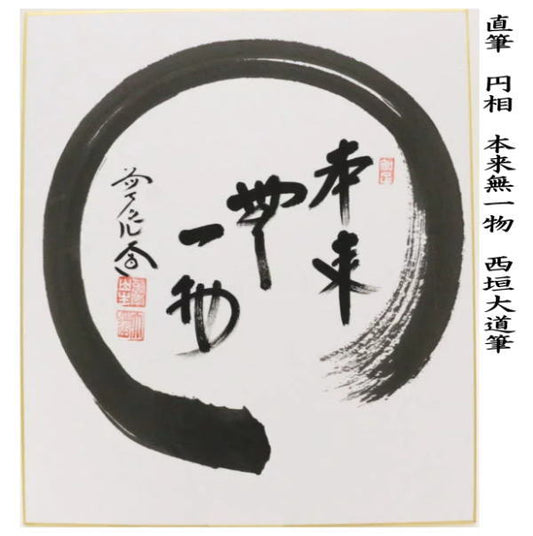 直筆 円相 本来無一物 西垣大道筆
本来
無
一物